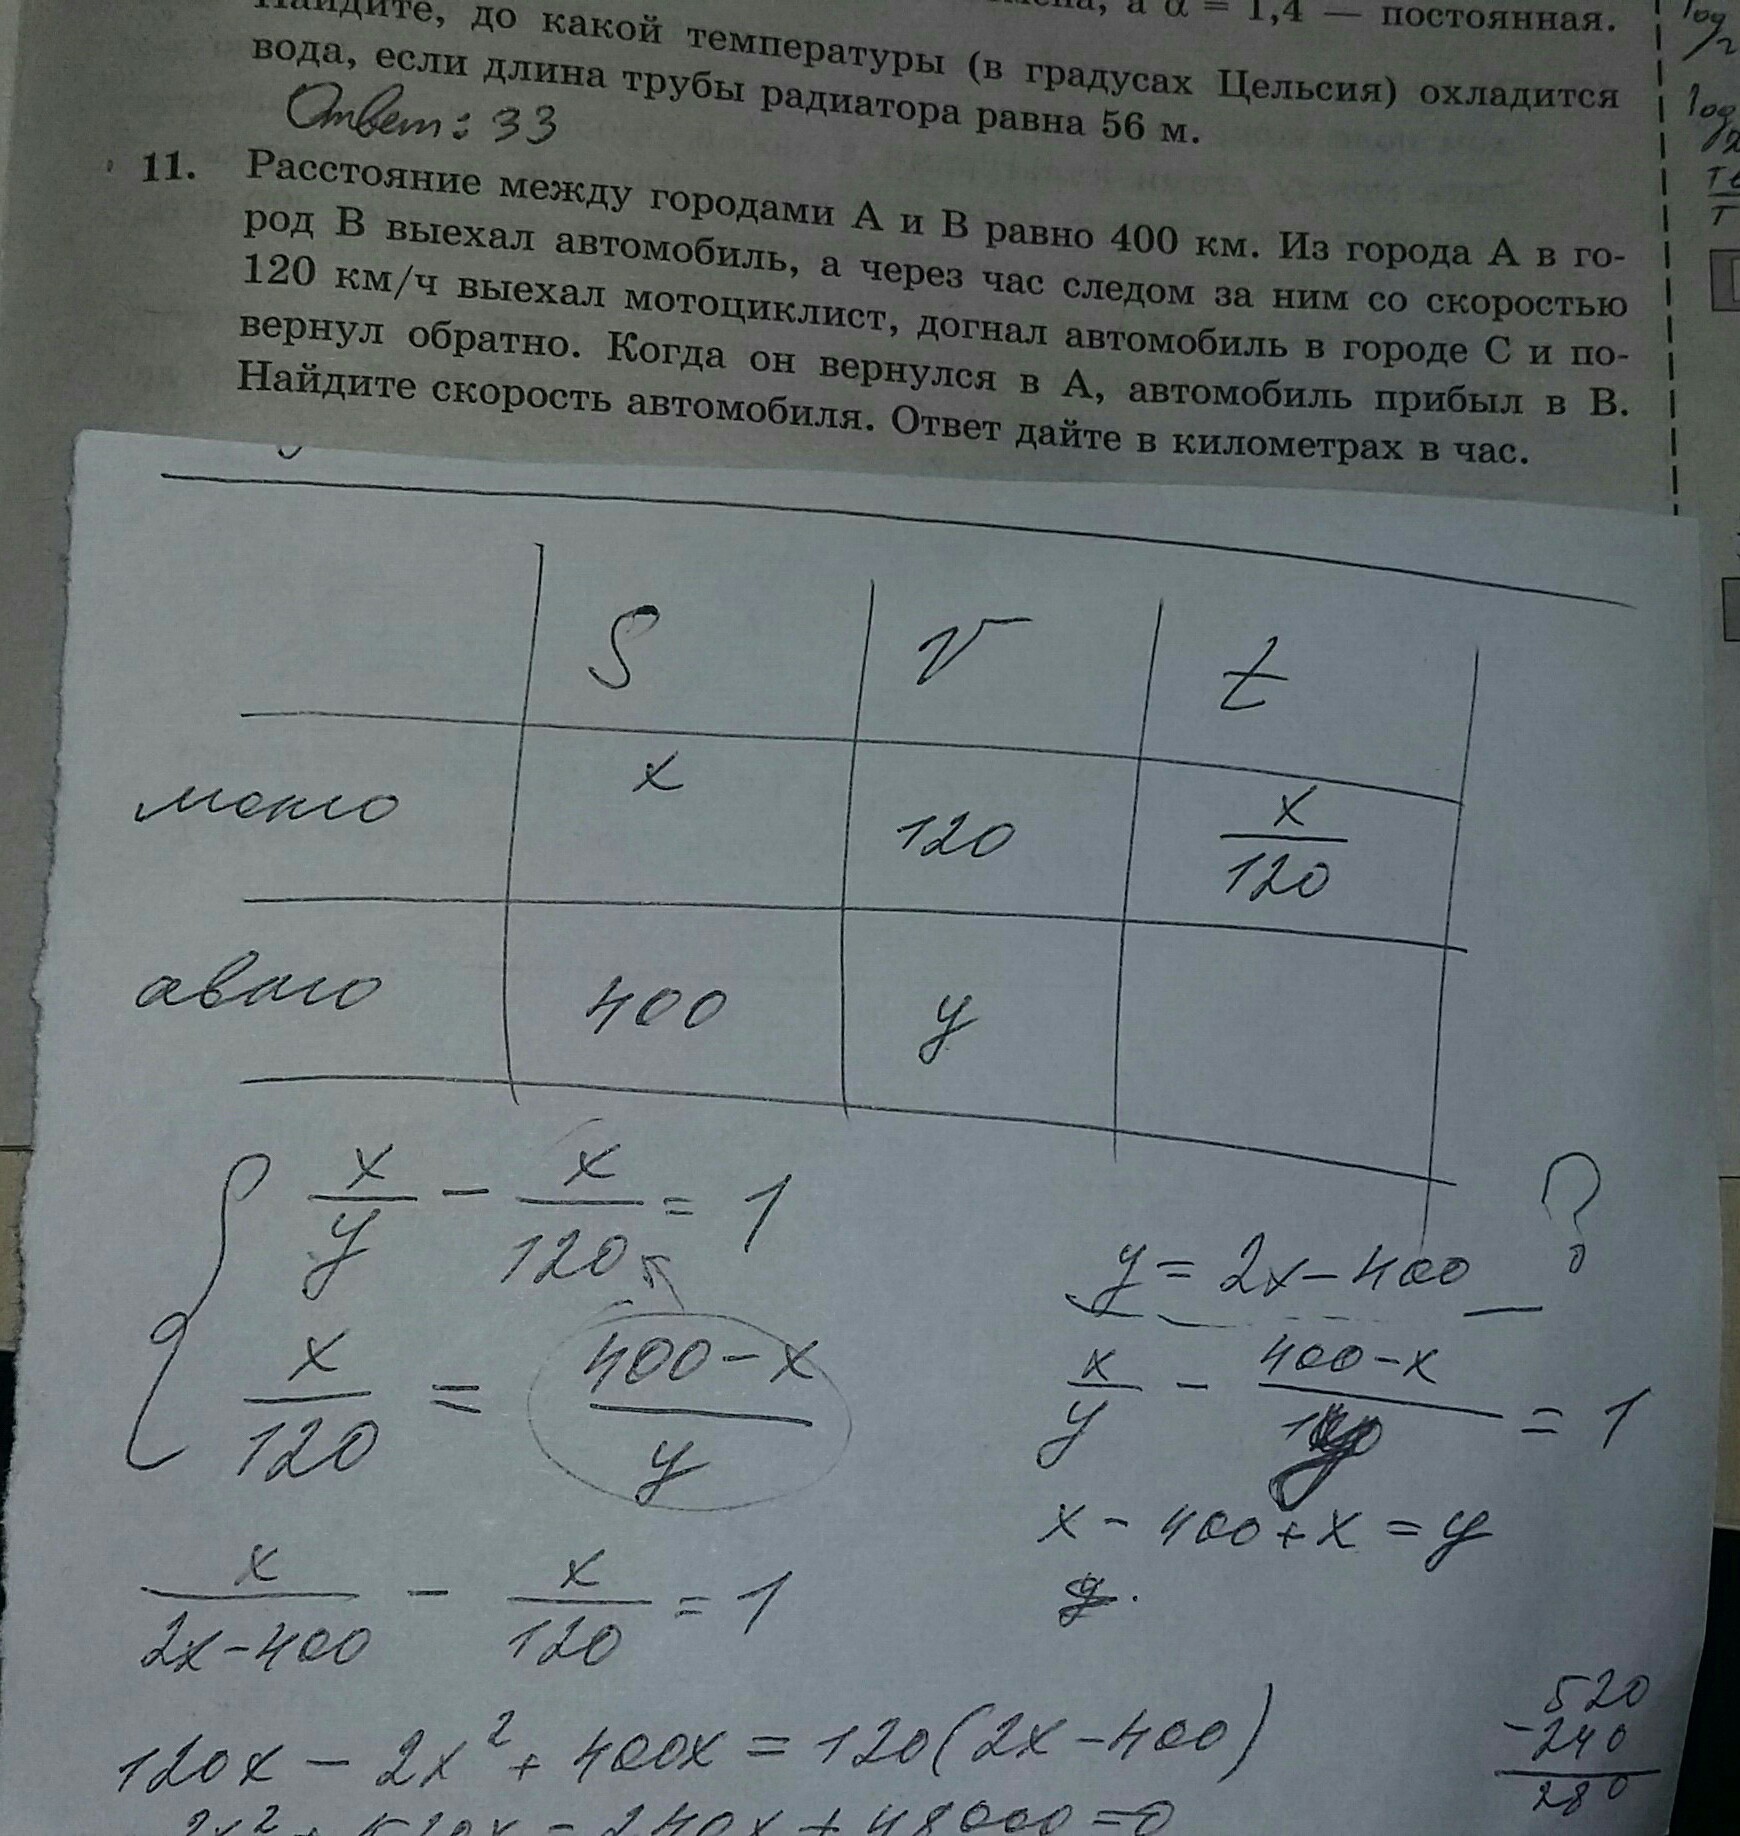 а α = 1,4 — постоянная.
Найдите, до какой температуры (в градусах Цельсия) охладится
вода, если длина трубы радиатора равна 56 м.
Ответ: 33
11. Расстояние между городами А и В равно 400 км. Из города А в го-
род В выехал автомобиль, а через час следом за ним со скоростью
120 км/ч выехал мотоциклист, догнал автомобиль в городе С и по-
вернул обратно. Когда он вернулся в А, автомобиль прибыл в В.
Найдите скорость автомобиля. Ответ дайте в километрах в час.
S V t
мото x 120 x/120
авто 400 y
x/y - x/120 = 1
x/120 = 400-x/y
y = 2x - 400 ?
x/y - 400-x/y = 1
x - 400 + x = y
y.
x/2x-400 - x/120 = 1
120x - 2x² + 400x = 120(2x - 400)
520
-240
280
2x² + 520x - 240x + 48000 = 0
log
log